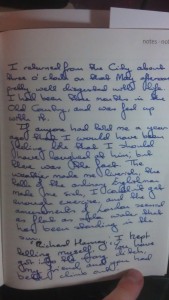 notes · not
I returned from the City about
three o'clock on that May afternoon
pretty well disgusted with life.
I had been three months in the
Old Country, and was fed up
with it.
If anyone had told me a year
ago that I would have been
feeling like that I should
have laughed at him; but
there was the fact. The
weather made me liverish, the
talk of the ordinary Englishman
made me sick, I couldn't get
enough exercise, and the
amusements of London seemed
as flat as soda-water that
had been standing in the
sun.
"Richard Hannay," I kept
telling myself, "you have
got into the wrong ditch,
my friend, and you had
better climb out."